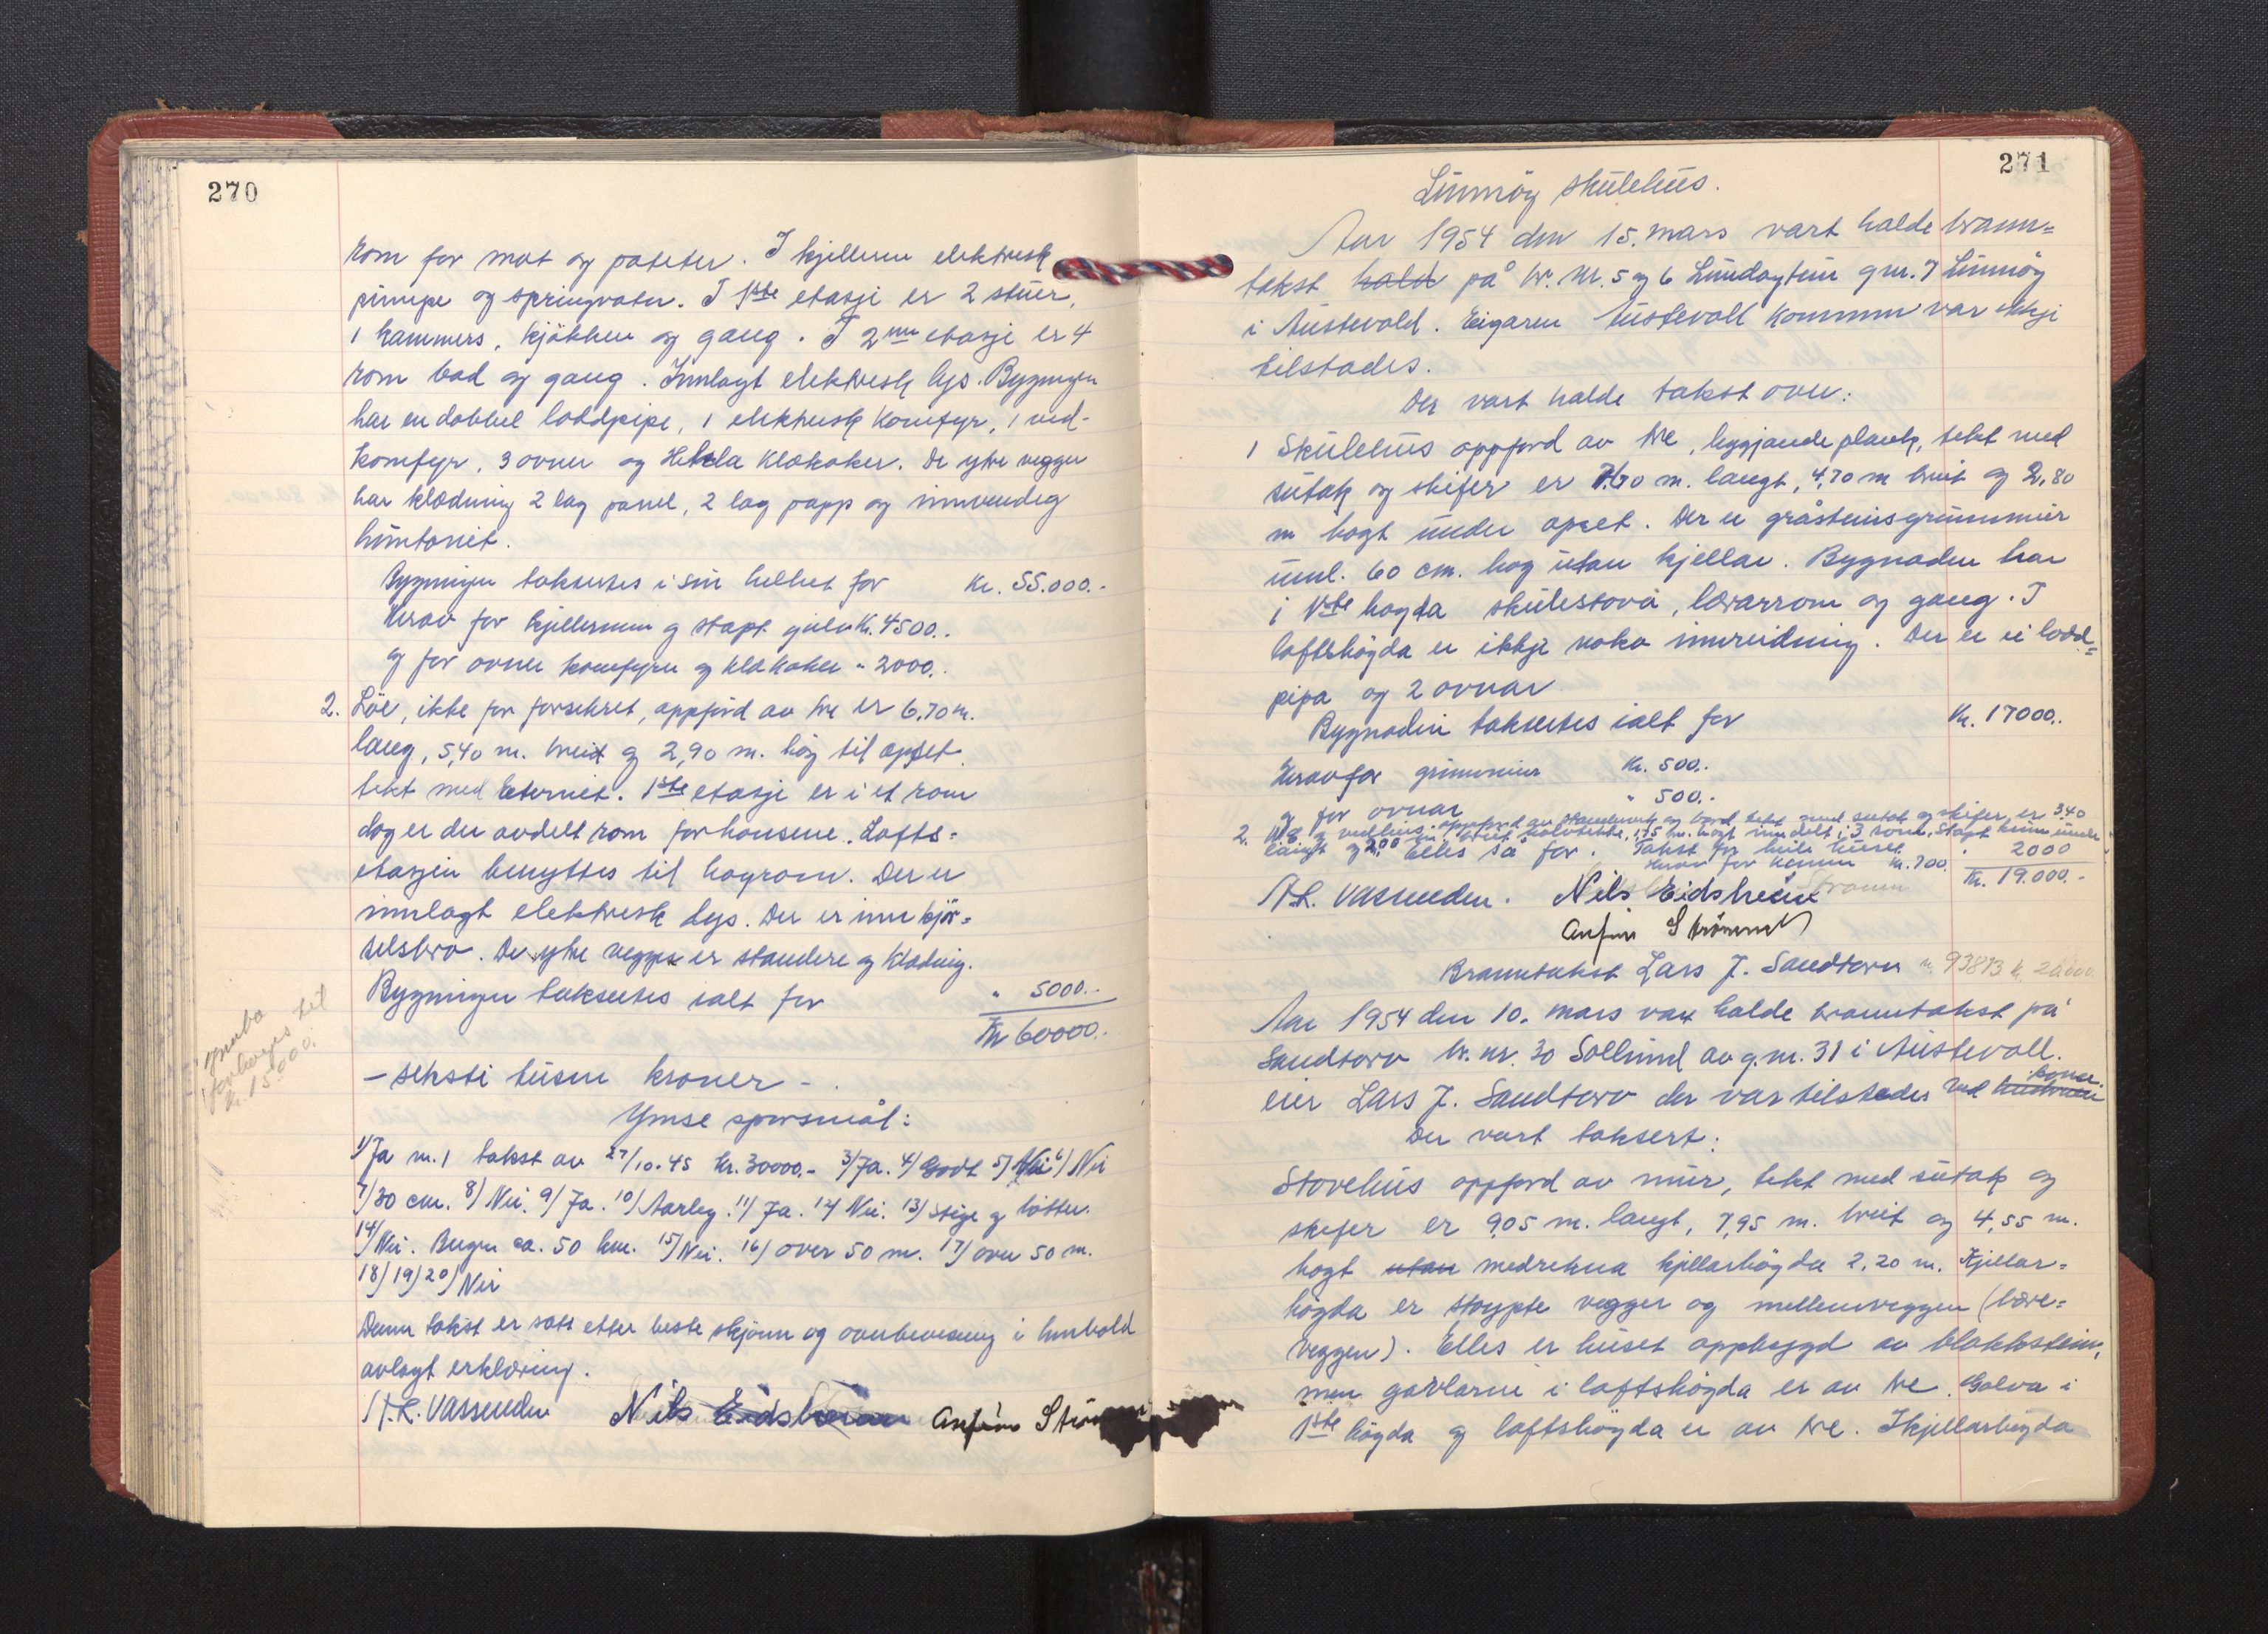 270
rom for mat og poteter. I kjelleren elektrisk
pumpe og springvatn. I 1ste etasje er 2 stuer,
1 kammers, kjøkken og gang. I 2nen etasje er 4
rom bad og gang. Innlagt elektrisk lys. Bygningen
har en dobbel loddpipe, 1 elektrisk komfyr, 1 ved-
komfyr, 3 ovner og Hekla klokoker. De ytre vegger
har klædning 2 lag panel, 2 lag papp og innvendig
huntonit.
Bygningen takseres i sin helhet for Kr. 55.000.-
Herav for kjellermur og støpt gulv Kr. 4500..
og for ovner komfyrer og klokoker " 2000..
2. Löe, ikke før forsikret, oppførd av tre er 6,70 m.
lang, 5,40 m. breit og 2,90 m. høg til opset.
tekt med Eternit. 1ste etasje er i et rom
dog er der avdelt rom for hønsene. Lofts=
etasjen benyttes til høyrom. Der er
innlagt elektrisk lys. Der er innkjör=
selsbro. De ytre vegger er standere og klædning.
Bygningen takseres ialt for " 5000.-
Kr 60000.-
- seksti tusen kroner -.
Ymse spørsmål:
1/ Ja nr. 1 takst av 27/10-45 kr. 30000.- 3/ Ja. 4/ Godt 5/ Nei 6/ Nei
7/ 30 cm. 8/ Nei. 9/ Ja. 10/ Aarleg. 11/ Ja. 12/ Nei. 13/ Stige og bøtter.
14/ Nei. Bergen ca. 50 km. 15/ Nei. 16/ over 50 m. 17/ over 50 m.
18/ 19/ 20/ Nei
Denne takst er satt etter beste skjønn og overbevisning i henhold
avlagt erklæring.
A.L. Vassenden Nils Eidsheim Anfinn Strømm
forhøyes til
kr. 15000.
271
Linnöy skulehus.
Aar 1954 den 15. mars vart halde brann=
takst hald på br. nr. 5 og 6 gnr. 7 Linnöy
i Austevold. Eigaren Austevoll Kommune var ikkje
tilstades.
Der vart halde takst over:
1 Skulehus oppførd av tre, liggjande plank, tekt med
sutak og skifer er 7,60 m. langt, 4,70 m breit og 2,80
m høgt under opset. Der er gråsteinsgrunnmur
uml. 60 cm. høg utan kjellar. Bygnaden har
i 1ste høgda skulestova, lærarrom og gang. I
loftshögda er ikkje noko innreidning. Der er ei lodd=
pipa og 2 ovnar
Bygnaden takseres ialt for Kr. 17000..
Herav for grunnmur Kr. 500..
og for ovnar " 500..
2. og vedhus. oppførd av standerverk og bord tekt med sutak og skifer er 3,40
langt og 2,00 m. breit halvtekke, 1,75 m. høgt inndelt i 3 rom. Støpt kum under
Elles så før. Takst for heile huset " 2000
Herav for kummen Kr. 700. Kr. 19.000.-
A.L. Vassenden. Nils Eidsheim
Anfinn Strømm
Branntakst Lars J. Sandtorv nr. 93813 k. 26000
Aar 1954 den 10. mars vart halde branntakst på
Sandtorv br. nr. 30 Sollund av g.nr. 31 i Austevoll.
eier Lars J. Sandtorv der var tilstades ved kona.
Der vart taksert:
Stovehus oppførd av mur, tekt med sutak og
skifer er 9,05 m. langt, 7,95 m. breit og 4,55 m.
høgt utan medrekna kjellarhögda 2,20 m. Kjellar=
högda er støypte vegger og mellomveggen (bære=
veggen). Elles er huset oppbygd av blokkstein,
men gavlarne i loftshögda er av tre. Golva i
1ste högda og loftshögda er av tre. I kjellarhögda